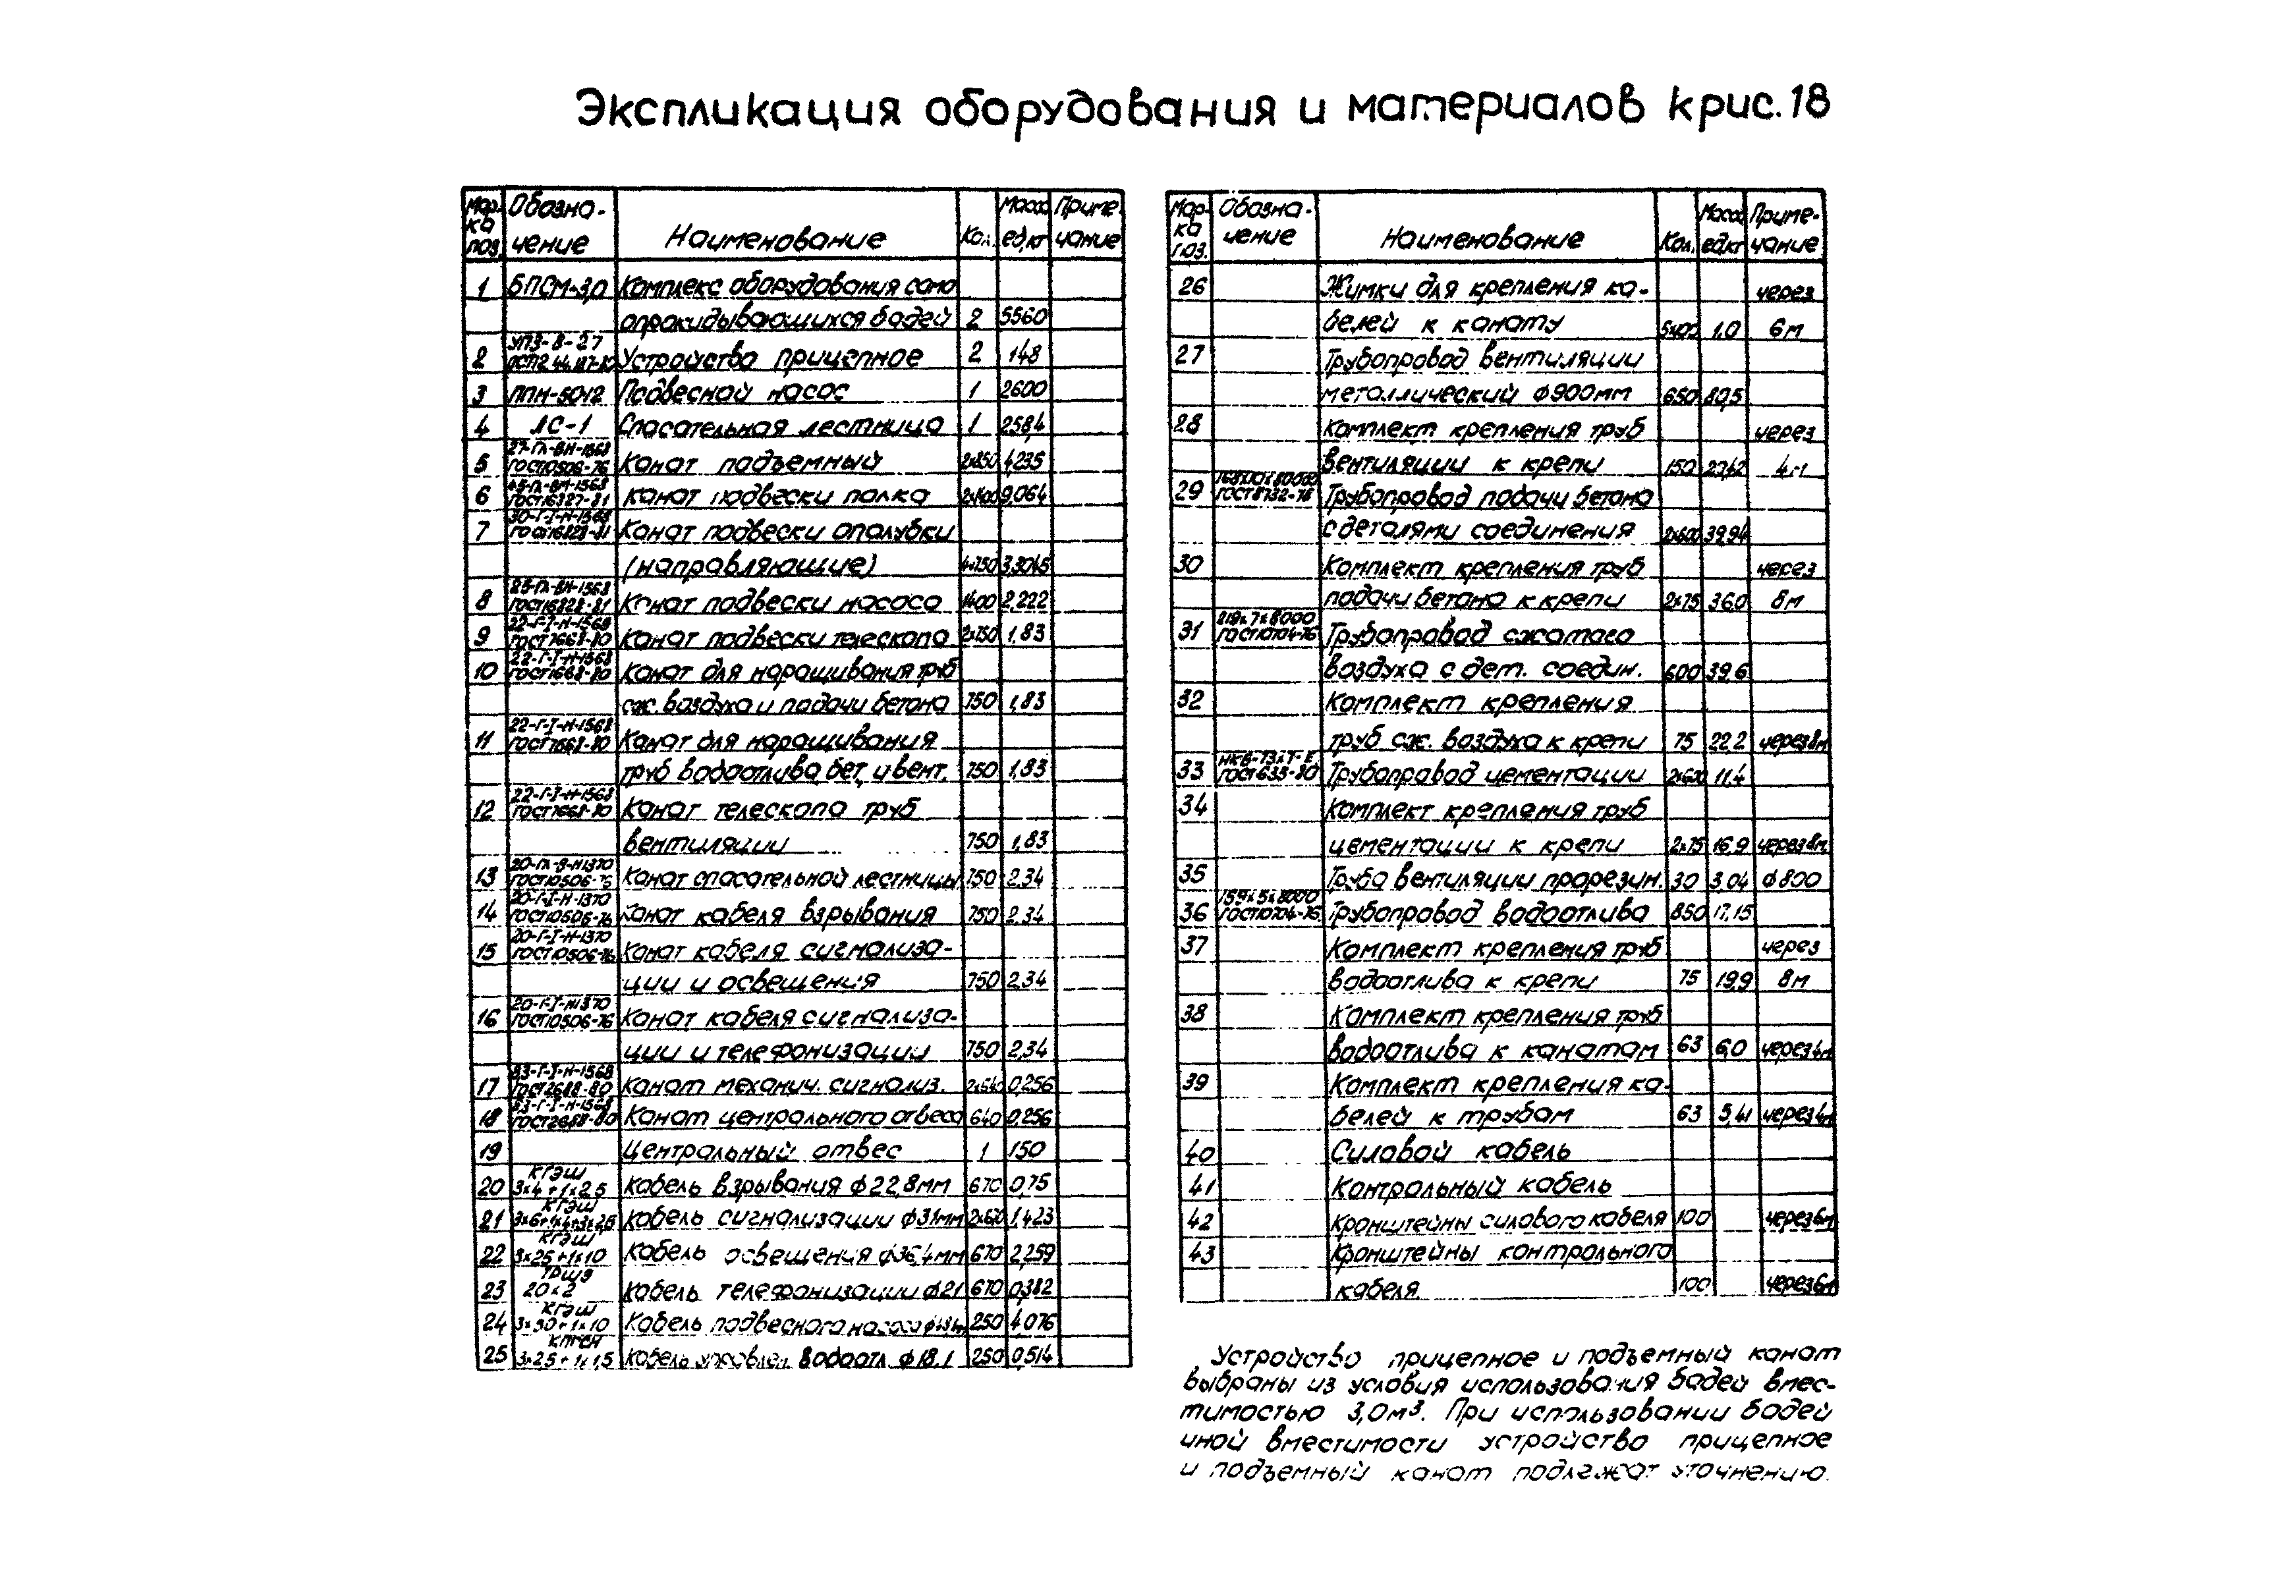 Экспликация оборудования и материалов к рис. 18
Мар-ка поз. Обозна-чение Наименование Кол. Масса ед,кг Приме-чание
1 БПСМ-3,0 Комплекс оборудования само
опрокидывающихся бадей 2 5560
УПЗ-8-27
2 Устройство прицепное 2 148
3 ППН-50-12 Подвесной насос 1 2600
4 ЛС-1 Спасательная лестница 1 2584
27-ГЛ-ВН-1568
5 ГОСТ10506-76 Канат подъемный 2х850 4,235
45-ГЛ-ВН-1568
6 ГОСТ16827-81 Канат подвески полка 2х1400 9,064
30-Г-I-Н-1568
7 ГОСТ16828-81 Канат подвески опалубки
(направляющие) 4х750 3,3045
25-ГЛ-ВН-1568
8 ГОСТ16828-81 Канат подвески насоса 1400 2,222
22-Г-I-Н-1568
9 ГОСТ7668-80 Канат подвески телескопа 2х750 1,83
22-Г-I-Н-1568
10 ГОСТ7668-80 Канат для наращивания труб
сж. воздуха и подачи бетона 750 1,83
22-Г-I-Н-1568
11 ГОСТ7668-80 Канат для наращивания
труб водоотлива, бет, и вент. 750 1,83
22-Г-I-Н-1568
12 ГОСТ7668-80 Канат телескопа труб
вентиляции 750 1,83
20-ГЛ-В-Н1370
13 ГОСТ10506-76 Канат спасательной лестницы 750 2,34
20-Г-I-Н-1370
14 ГОСТ10506-76 Канат кабеля взрывания 750 2,34
20-Г-I-Н-1370
15 ГОСТ10506-76 Канат кабеля сигнализа-
ции и освещения 750 2,34
20-Г-I-Н1370
16 ГОСТ10506-76 Канат кабеля сигнализа-
ции и телефонизации 750 2,34
83-Г-I-Н-1568
17 ГОСТ2688-80 Канат механич. сигнализ. 2х640 0,256
83-Г-I-Н-1568
18 ГОСТ2688-80 Канат центрального отвеса 640 0,256
19 Центральный отвес 1 150
КГЭШ
20 3х4+1х2,5 Кабель взрывания ф22,8мм 670 0,75
КГЭШ
21 Кабель сигнализации ф31мм 2х670 1,423
КГЭШ
22 3х25+1х10 Кабель освещения ф36,4мм 670 2,259
ТРШЭ
23 20х2 Кабель телефонизации ф21 670 0,382
КГЭШ
24 3х50+1х10 Кабель подвесного насоса 250 4,076
КПГСН
25 3х2,5+1х1,5 Кабель управлен. водоотл ф18,1 250 0,514
Мар-ка поз. Обозна-чение Наименование Кол. Масса ед,кг Приме-чание
26 Жимки для крепления ка- через
белей к канату 5х100 1,0 6м
27 Трубопровод вентиляции
металлический ф900мм 650 80,5
28 Комплект крепления труб через
вентиляции к крепи 150 27,62 4м
168х10х8000
29 ГОСТ8732-78 Трубопровод подачи бетона
с деталями соединения 2х600 39,94
30 Комплект крепления труб через
подачи бетона к крепи 2х75 36,0 8м
219х7х8000
31 ГОСТ10704-76 Трубопровод сжатого
воздуха с дет. соедин. 600 39,6
32 Комплект крепления
труб сж. воздуха к крепи 75 22,2 через8м
НКВ-73х7-Е
33 ГОСТ633-80 Трубопровод цементации 2х600 11,4
34 Комплект крепления труб
цементации к крепи 2х75 16,9 через8м
35 Труба вентиляции прорезин. 30 3,04 ф800
159х5х8000
36 ГОСТ10704-76 Трубопровод водоотлива 850 17,15
37 Комплект крепления труб через
водоотлива к крепи 75 19,9 8м
38 Комплект крепления труб
водоотлива к канатам 63 6,0 через4м
39 Комплект крепления ка-
белей к трубам 63 5,41 через4м
40 Силовой кабель
41 Контрольный кабель
42 Кронштейны силового кабеля 100 через6м
43 Кронштейны контрольного
кабеля 100 через6м
Устройство прицепное и подъемный канат
выбраны из условия использования бадей вмес-
тимостью 3,0м³. При использовании бадей
иной вместимости устройство прицепное
и подъемный канат подлежат уточнению.